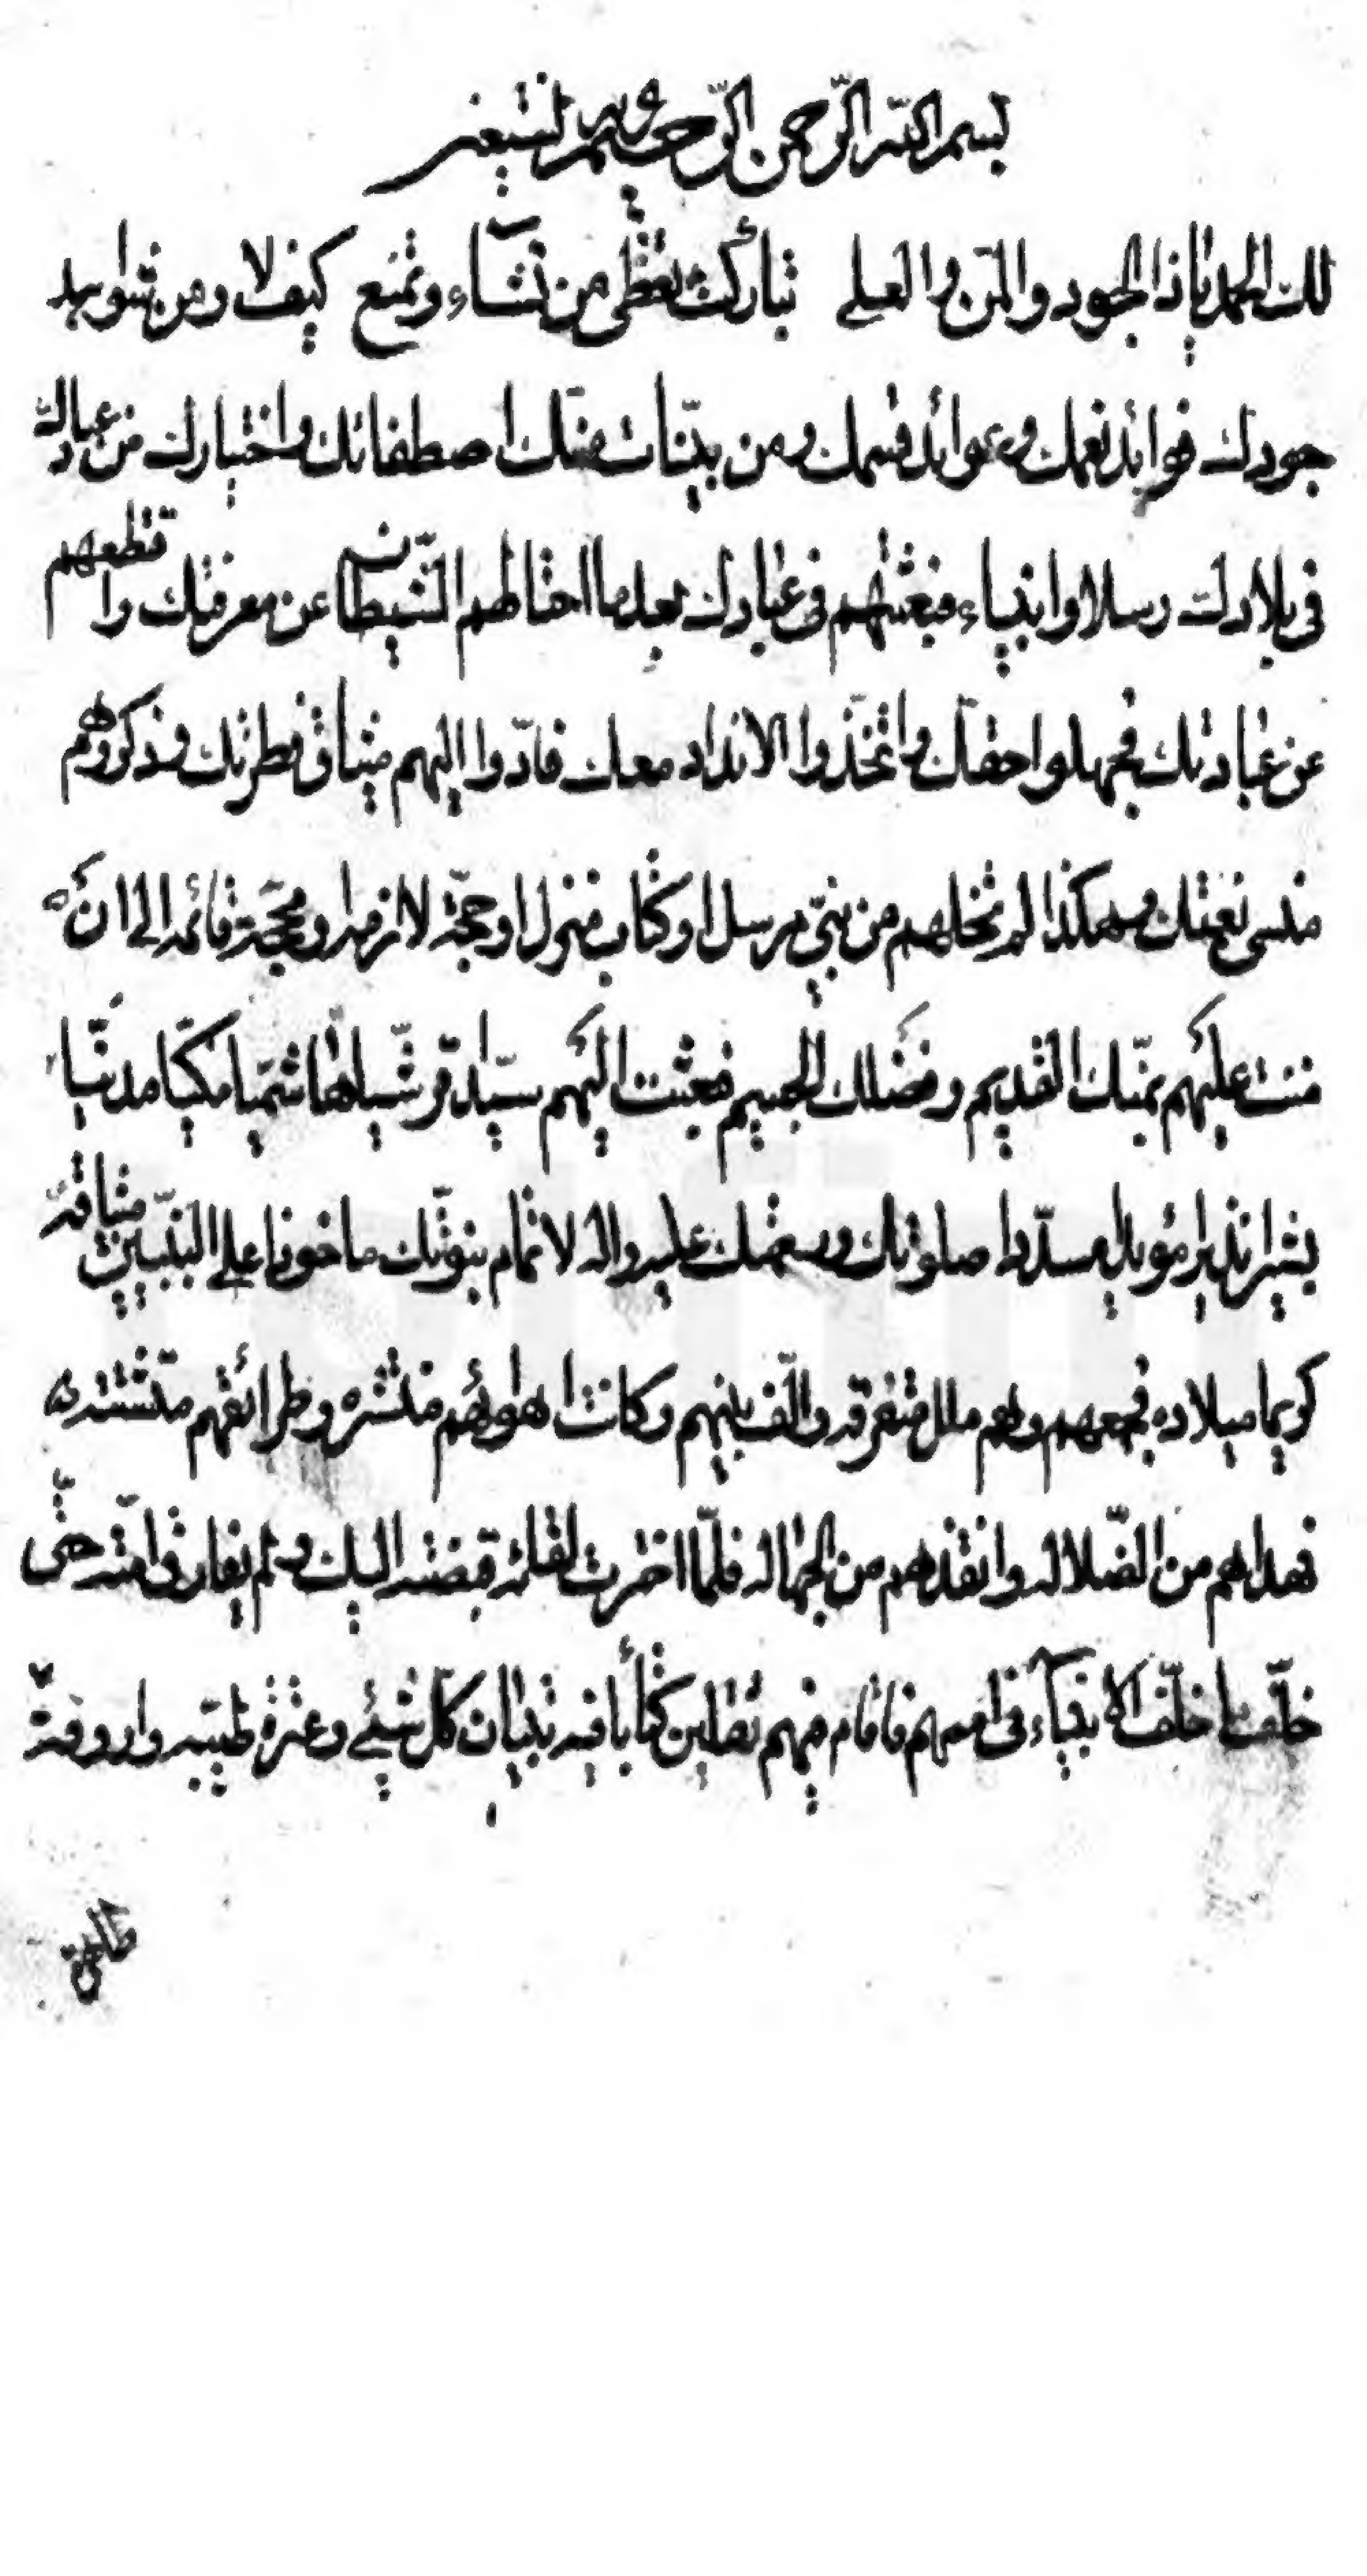 بسم الله الرّحمن الرّحيم وبه نستعين
لك الحمد يا ذا الجود والمنّ والعلى تباركت تعطى من تشاء وتمنع كيف لا ومن شواهد
جودك فوائد نعمك وعوائد قسمك ومن بيّنات منّك اصطفائك واختيارك من عبادك
فى بلادك رسلا وانبياء فبعثتهم فى عبادك بعد ما اختالهم الشّيطان عن معرفتك واقتطعهم
عن عبادتك فجهلوا حقّك واتّخذوا الانداد معك فادّوا اليهم ميثاق فطرتك وذكّروهم
منسى نعمتك وهكذا لم تخلهم من نبىّ مرسل او كتاب منزل او حجّة لازمه او محجّة قائمه الى ان
مننت عليهم بمنّك القديم وفضلك الجسيم فبعثت اليهم سيّدا قرشيّا هاشميّا مكيّا مدنيّا
بشيرا نذيرا مؤيدا مسدّدا صلوتك ورحمتك عليه واله لاتمام نبوّتك ماخوذا على النبيّين ميثاقه
كريما ميلاده فجمعهم وهم ملل متفرقه والّف بينهم وكانت اهوائهم منتشره وطرائقهم متشتته
فهداهم من الضّلاله وانقذهم من الجهاله فلمّا اخترت لقائه قبضته اليك ولم يفارق امّته حتّى
خلّف ما خلّف الانبياء فى اممهم فاقام فيهم ثقلين كتابا فيه تبيان كلّ شىء وعترة طيّبه وارومة
طاهرة